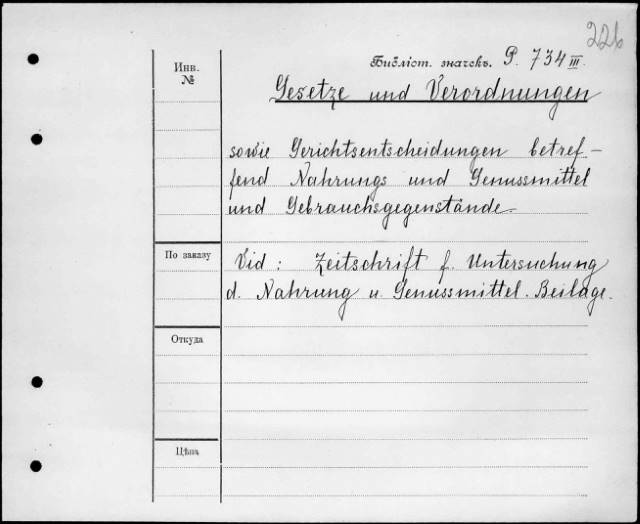 226
Библіот. значекъ. P. 734 III.
Инв. №
Gesetze und Verordnungen
sowie Gerichtsentscheidungen betref-
fend Nahrungs und Genussmittel
und Gebrauchsgegenstände.
По заказу
Vid: Zeitschrift f. Untersuchung
d. Nahrung u. Genussmittel. Beilage.
Откуда
Цѣна